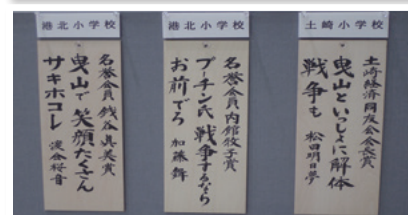 土崎小学校
土崎経済同友会会長賞
曳山といっしょに解体
戦争も 松田明日夢
港北小学校
名誉会員内館牧子賞
プーチン氏戦争するなら
お前でろ 加藤舞
港北小学校
名誉会員 銭谷眞美賞
曳山で笑顔たくさん
サキホコレ 渡会桜音